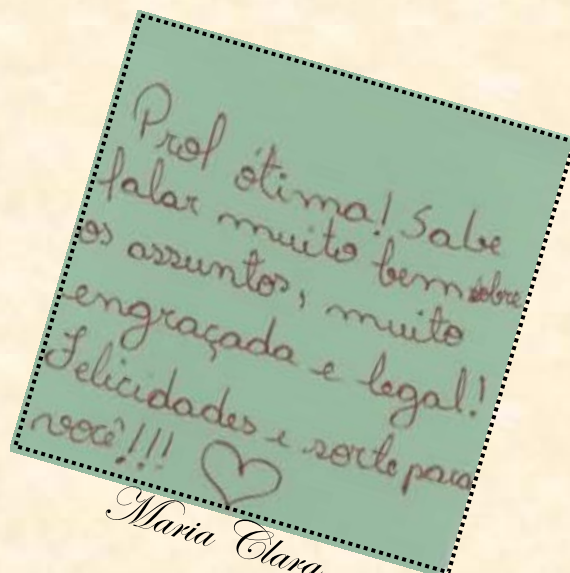 Prof ótima! Sabe
falar muito bem sobre
os assuntos, muito
engraçada e legal!
Felicidades e sorte para
você!!!
Maria Clara